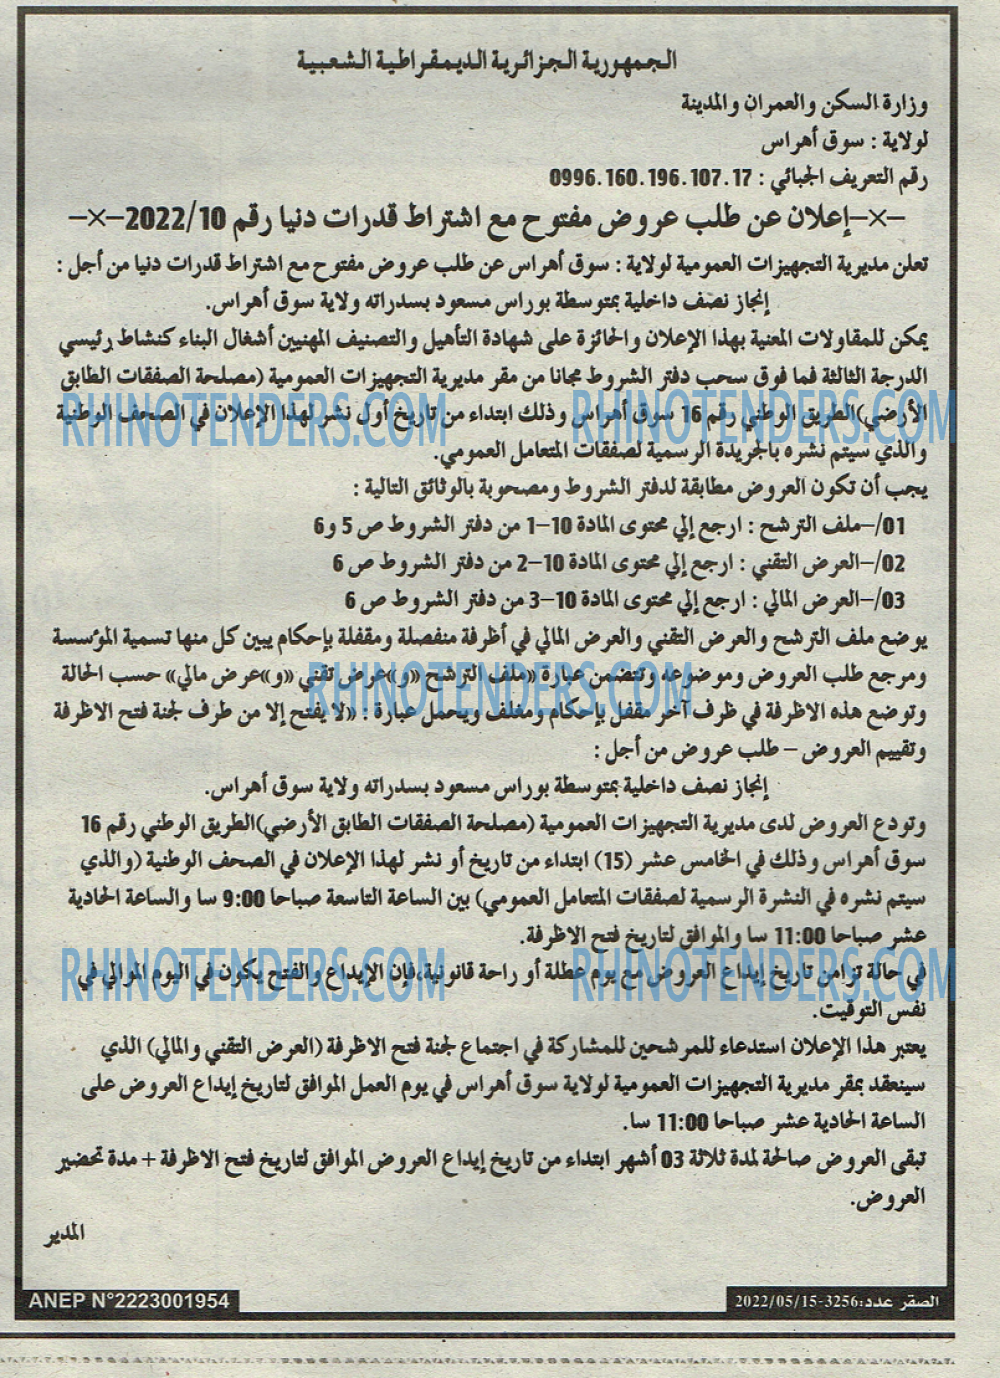 الجمهورية الجزائرية الديمقراطية الشعبية
وزارة السكن والعمران والمدينة
لولاية : سوق أهراس
رقم التعريف الجبائي : 0996.160.196.107.17
-×-إعلان عن طلب عروض مفتوح مع اشتراط قدرات دنيا رقم 2022/10-×-
تعلن مديرية التجهيزات العمومية لولاية : سوق أهراس عن طلب عروض مفتوح مع اشتراط قدرات دنيا من أجل :
إنجاز نصف داخلية بمتوسطة بوراس مسعود بسدراته ولاية سوق أهراس.
يمكن للمقاولات المعنية بهذا الإعلان والحائزة على شهادة التأهيل والتصنيف المهنيين أشغال البناء كنشاط رئيسي
الدرجة الثالثة فما فوق سحب دفتر الشروط مجانا من مقر مديرية التجهيزات العمومية (مصلحة الصفقات الطابق
الأرضي)الطريق الوطني رقم 16 سوق أهراس وذلك ابتداء من تاريخ أول نشر لهذا الإعلان في الصحف الوطنية
RHINOTENDERS.COM RHINOTENDERS.COM
والذي سيتم نشره بالجريدة الرسمية لصفقات المتعامل العمومي.
يجب أن تكون العروض مطابقة لدفتر الشروط ومصحوبة بالوثائق التالية :
01/-ملف الترشح : ارجع إلي محتوى المادة 10-1 من دفتر الشروط ص 5 و6
02/-العرض التقني : ارجع إلي محتوى المادة 10-2 من دفتر الشروط ص 6
03/-العرض المالي : ارجع إلي محتوى المادة 10-3 من دفتر الشروط ص 6
يوضع ملف الترشح والعرض التقني والعرض المالي في أظرفة منفصلة ومقفلة بإحكام يبين كل منها تسمية المؤسسة
ومرجع طلب العروض وموضوعه وتتضمن عبارة «ملف الترشح «و»عرض تقني «و»عرض مالي» حسب الحالة
RHINOTENDERS.COM
وتوضع هذه الاظرفة في ظرف آخر مقفل بإحكام ومغلف ويحمل عبارة : «لا يفتح إلا من طرف لجنة فتح الاظرفة
وتقييم العروض – طلب عروض من أجل :
إنجاز نصف داخلية بمتوسطة بوراس مسعود بسدراته ولاية سوق أهراس.
وتودع العروض لدى مديرية التجهيزات العمومية (مصلحة الصفقات الطابق الأرضي)الطريق الوطني رقم 16
سوق أهراس وذلك في الخامس عشر (15) ابتداء من تاريخ أو نشر لهذا الإعلان في الصحف الوطنية (والذي
سيتم نشره في النشرة الرسمية لصفقات المتعامل العمومي) بين الساعة التاسعة صباحا 9:00 سا والساعة الحادية
عشر صباحا 11:00 سا والموافق لتاريخ فتح الاظرفة.
RHINOTENDERS.COM RHINOTENDERS.COM
في حالة تزامن تاريخ إيداع العروض مع يوم عطلة أو راحة قانونية،فإن الإيداع والفتح يكون في اليوم الموالي في
نفس التوقيت.
يعتبر هذا الإعلان استدعاء للمرشحين للمشاركة في اجتماع لجنة فتح الاظرفة (العرض التقني والمالي) الذي
سينعقد بمقر مديرية التجهيزات العمومية لولاية سوق أهراس في يوم العمل الموافق لتاريخ إيداع العروض على
الساعة الحادية عشر صباحا 11:00 سا.
تبقى العروض صالحة لمدة ثلاثة 03 أشهر ابتداء من تاريخ إيداع العروض الموافق لتاريخ فتح الاظرفة + مدة تحضير
العروض.
المدير
الصقر عدد:3256-2022/05/15
ANEP N°2223001954